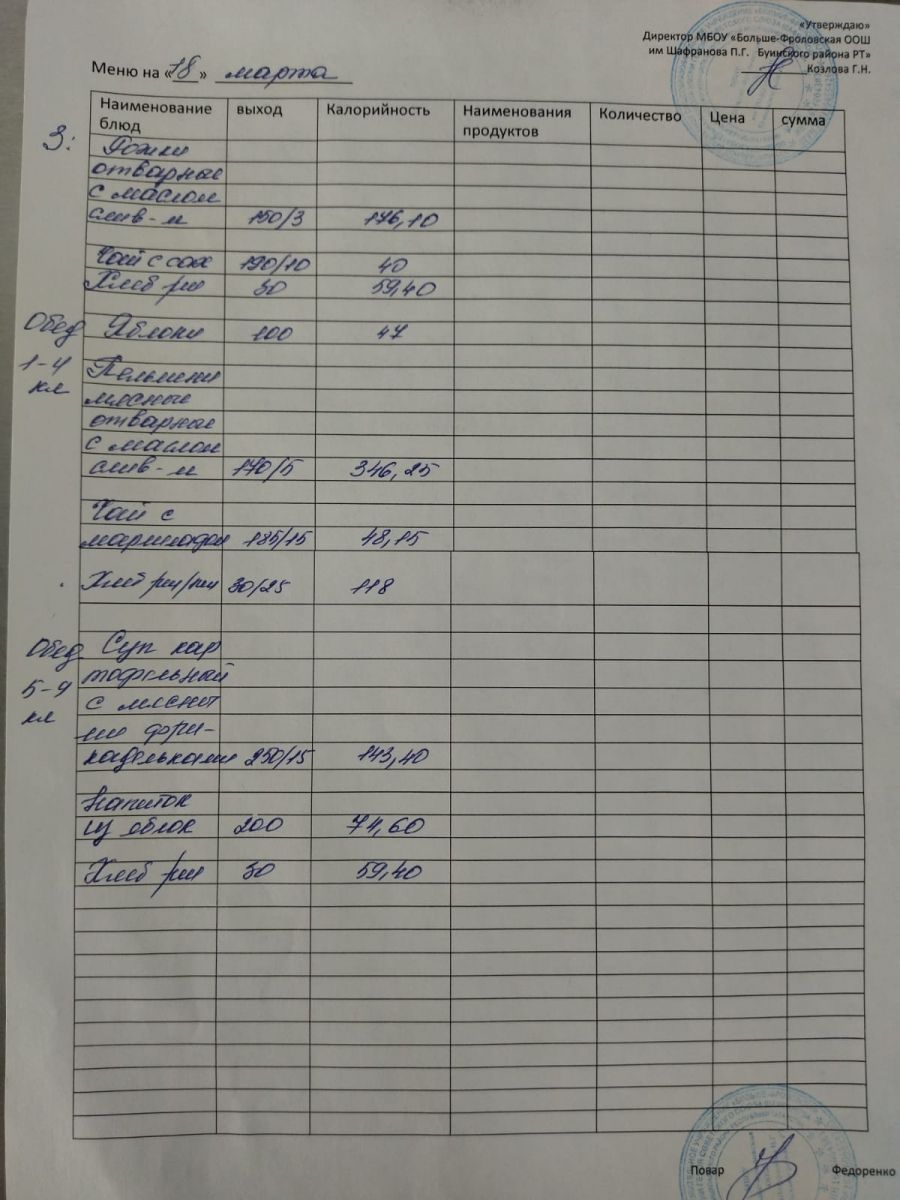 «Утверждаю»
Директор МБОУ «Больше-Фроловская ООШ
им Шафранова П.Г. Буинского района РТ»
Козлова Г.Н.
Меню на «18» марта
Наименование блюд выход Калорийность Наименования продуктов Количество Цена сумма
З:
Рожки
отварные
с маслом
слив-м 150/3 176,10
Чай с сах 190/10 40
Хлеб рж 30 59,40
Обед
1-4
кл
Яблоки 100 47
Пельмени
мясные
отварные
с маслом
слив-м 170/5 346,25
Чай с
мармладом 185/15 48,15
Хлеб 30/25 118
Обед
5-9
кл
Суп кар
тофельный
с мясны
ми фри-
кадельками 250/15 143,40
Напиток
из яблок 200 74,60
Хлеб рж 30 59,40
Повар Федоренко